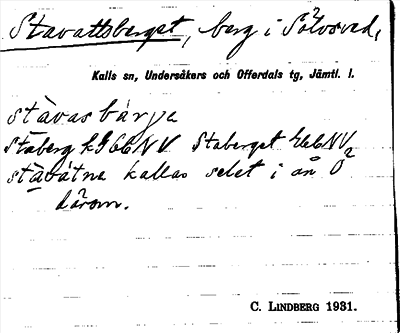 Stavattsberget, berg i Sölvsved,
Kalls sn, Undersåkers och Offerdals tg, Jämtl. l.
stàvasbárje
Staberg k G 66 NV Staberget 466 NV
stàvátna kallas selet i ån Ö
därom. 2
C. LINDBERG 1931.